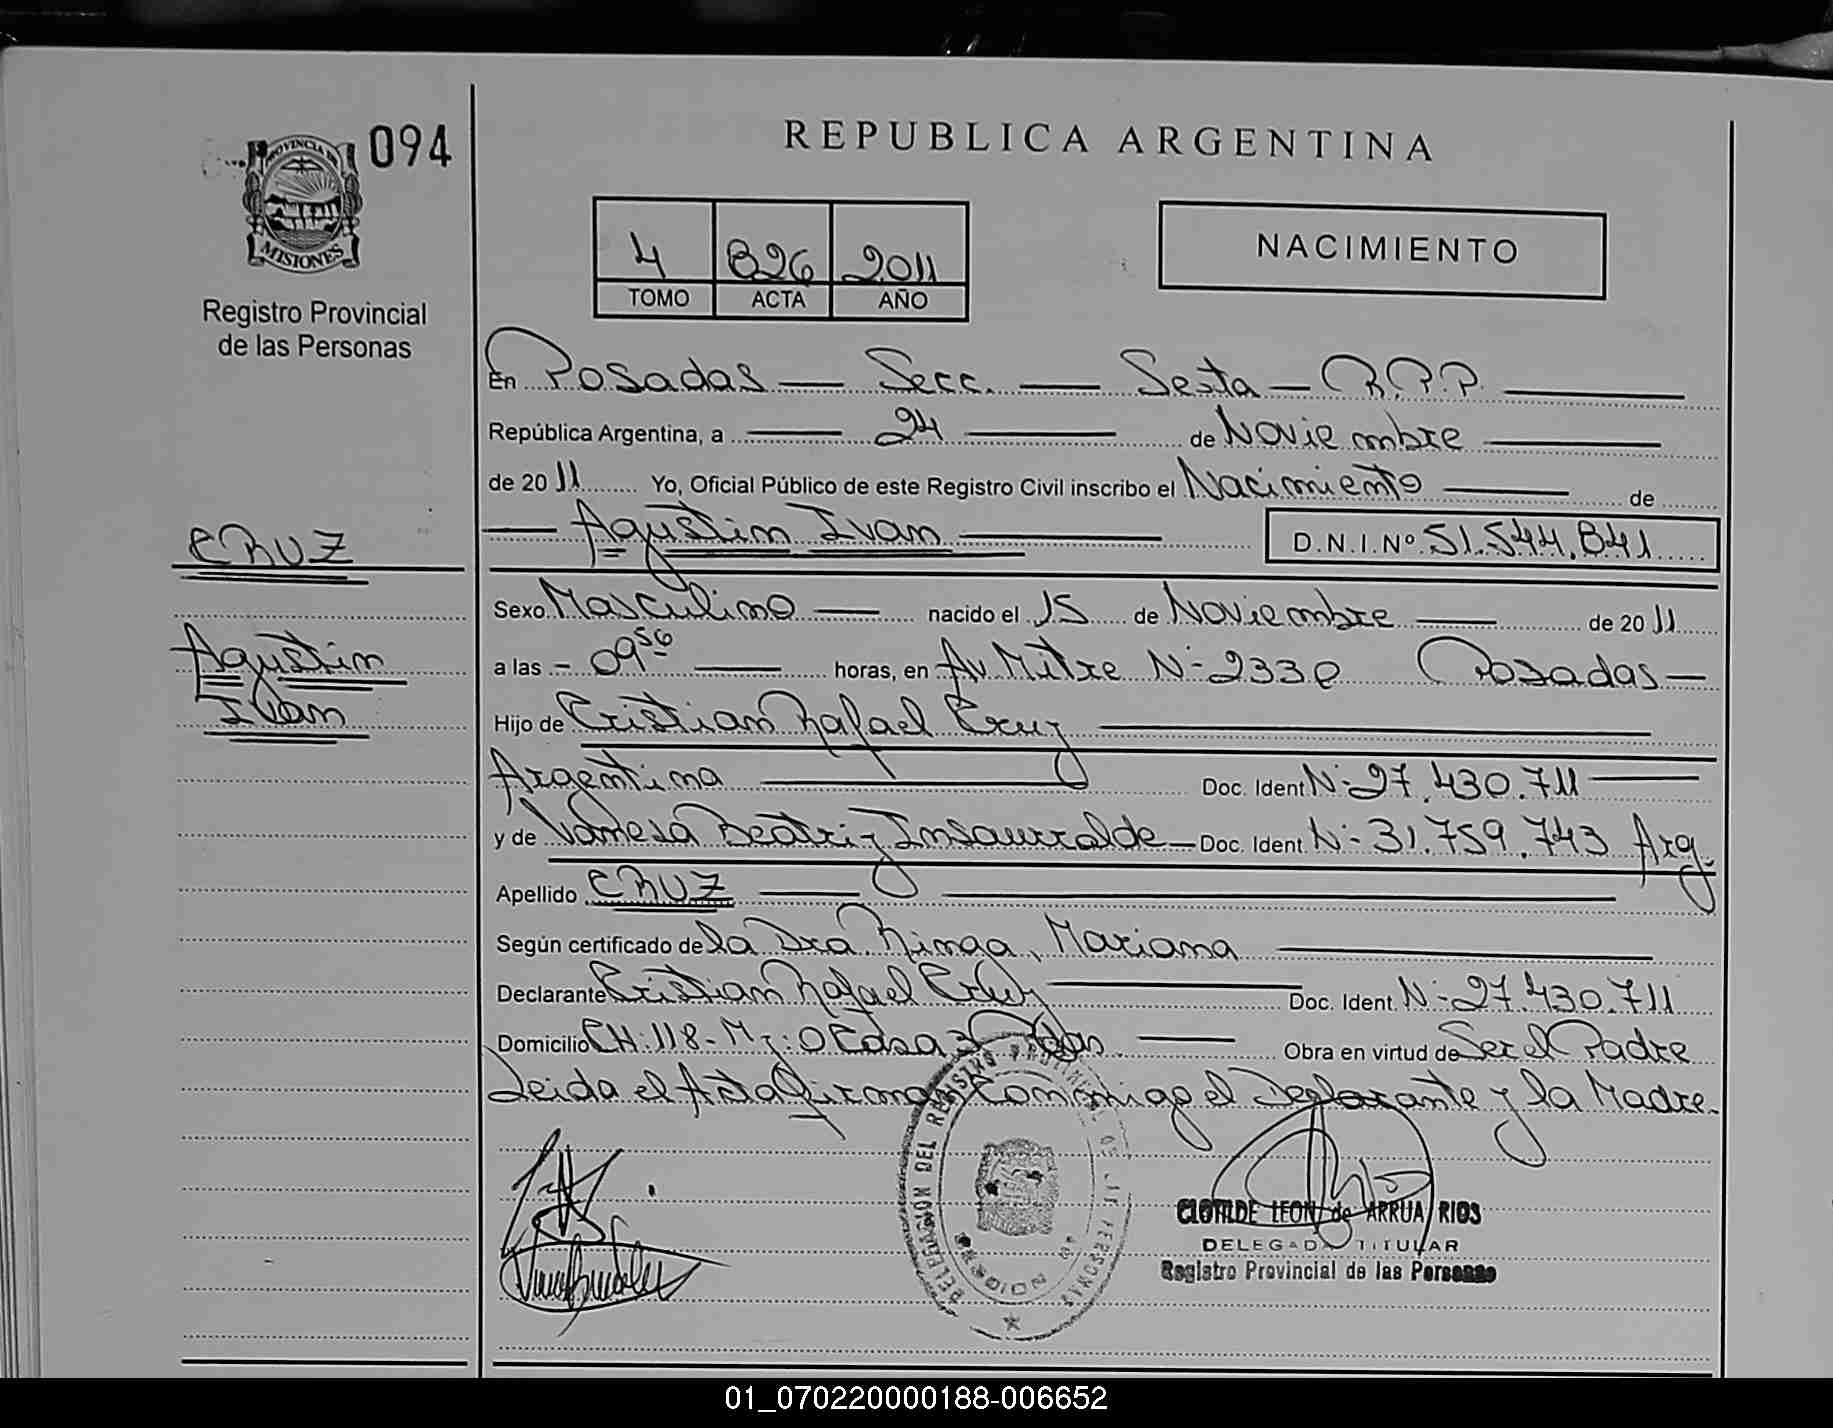 094
PROVINCIA DE
MISIONES
Registro Provincial
de las Personas
REPUBLICA ARGENTINA
4 826 2011
TOMO ACTA AÑO
NACIMIENTO
En Posadas — Secc. — Sexta — R.P.P.
República Argentina, a — 24 — de Noviembre
de 2011 Yo, Oficial Público de este Registro Civil inscribo el Nacimiento — de
— Agustin Ivan — D.N.I.Nº 51.544.841
CRUZ
Agustin
Ivan
Sexo Masculino — nacido el 15 de Noviembre — de 2011
a las - 09 56 — horas, en Av. Mitre Nº 2330 Posadas —
Hijo de Cristian Rafael Cruz
Argentina — Doc. Ident Nº 27.430.711
y de Vanesa Beatriz Insaurralde — Doc. Ident. Nº 31.759.743 Arg.
Apellido CRUZ
Según certificado de la Dra. Ringa, Mariana
Declarante Cristian Rafael Cruz — Doc. Ident. Nº 27.430.711
Domicilio CH: 118 - Mz: O Casa 3 Pdas. — Obra en virtud de Ser el Padre
Leida el Acta firman conmigo el Declarante y la Madre.
DELEGACION DEL REGISTRO PROVINCIAL DE LAS PERSONAS
CLOTILDE LEON de ARRUA RIOS
DELEGADA TITULAR
Registro Provincial de las Personas
01_070220000188-006652